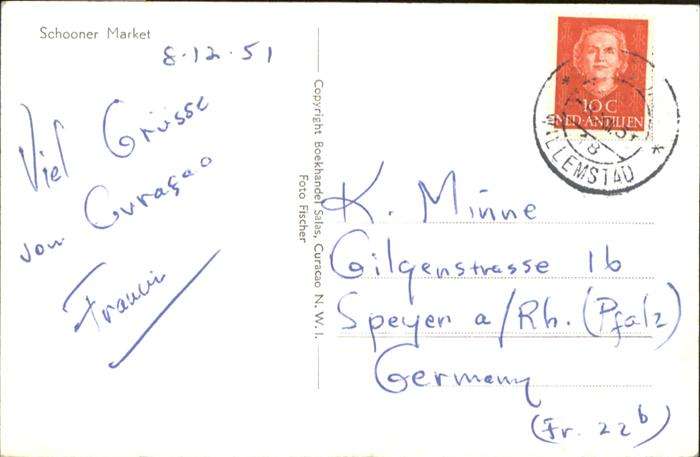 Schooner Market
8·12·51
Viel Grüsse
von Curaçao
Copyright Boekhandel Salas, Curacao N. W. I.
Foto Fischer
10 C
NED-ANTILLEN
WILLEMSTAD
K. Minne
Gilgenstrasse 16
Speyer a/Rh. (Pfalz)
Germany
(Fr. 22b)